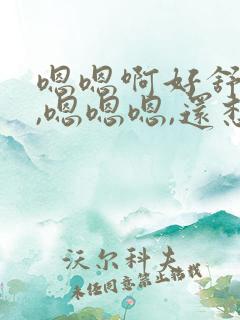 嗯嗯啊好舒
,嗯嗯嗯,還想
沃尔科夫
未经同意禁止转载